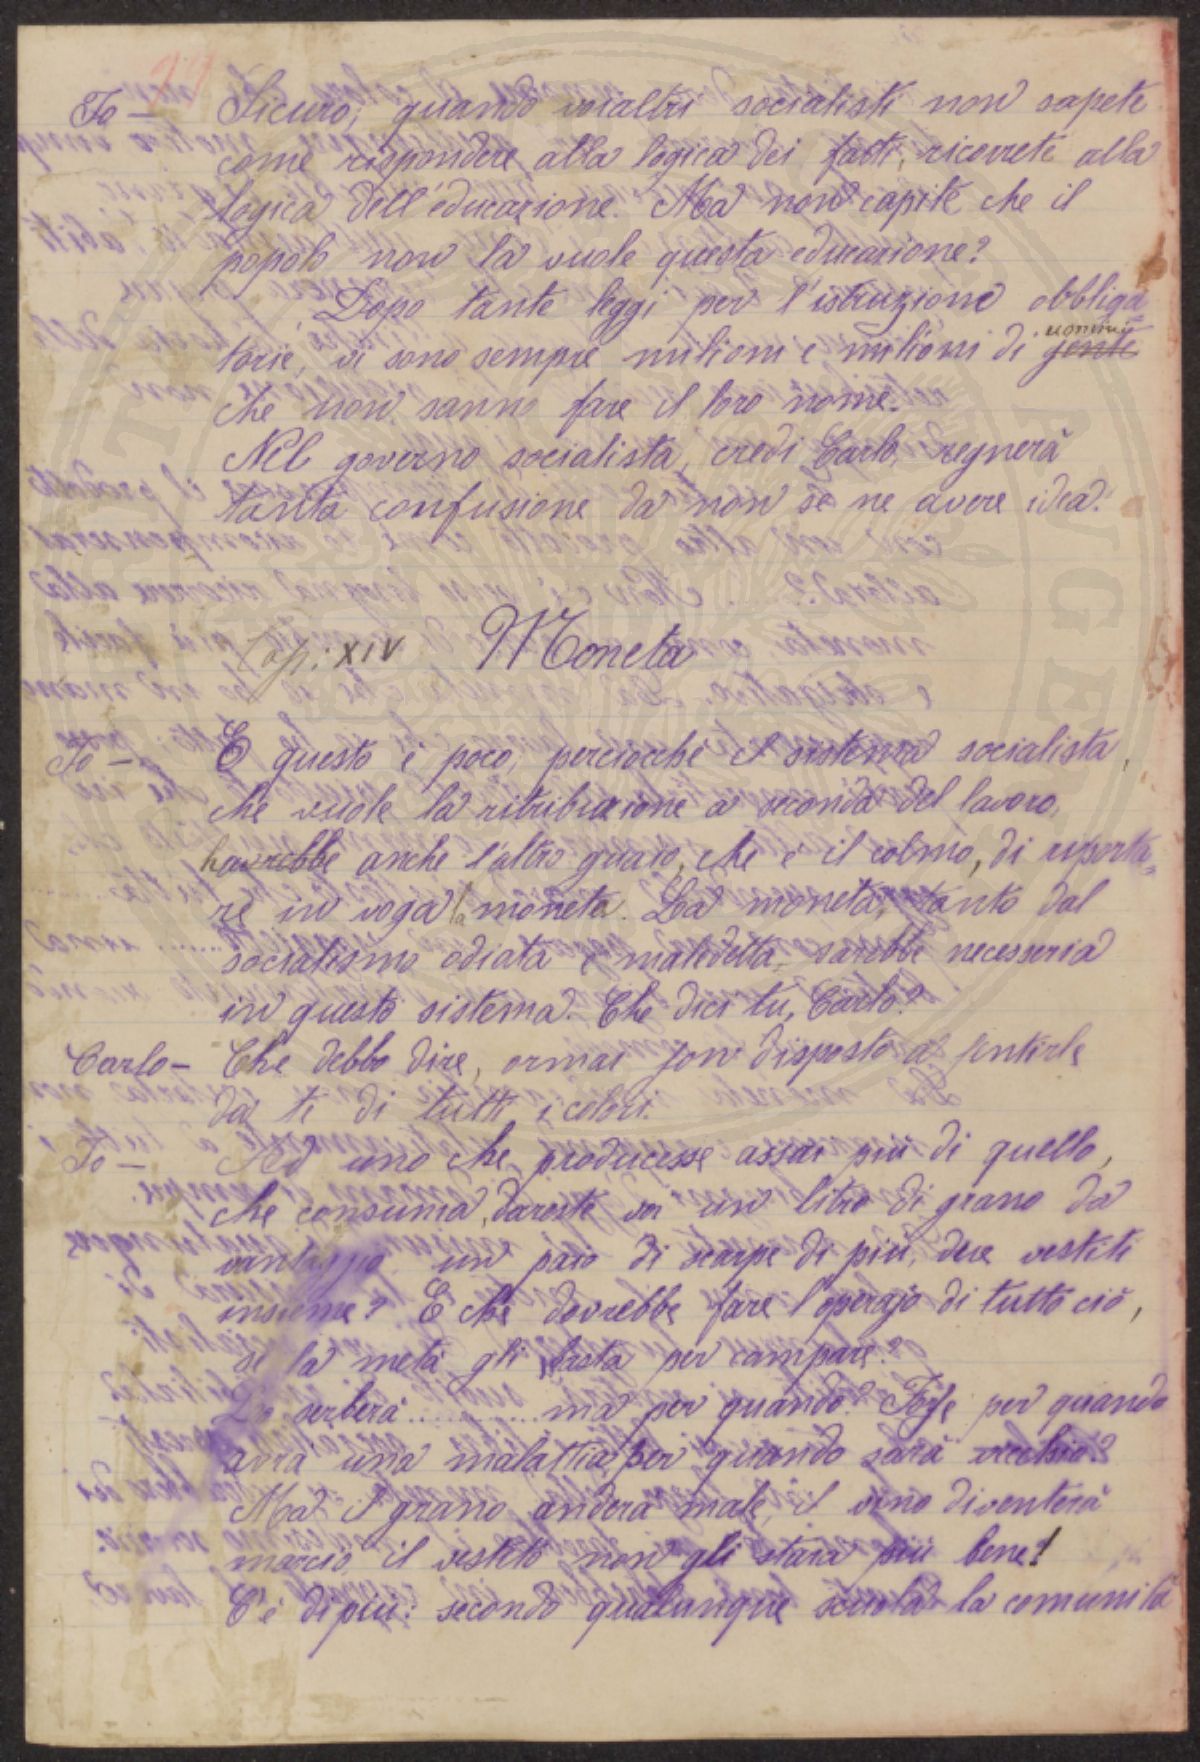 Io — Sicuro, quando voialtri socialisti non sapete
come rispondere alla logica dei fatti, ricorrete alla
logica dell'educazione. Ma non capite che il
popolo non la vuole questa educazione?
Dopo tante leggi per l'istruzione obbliga
torie, vi sono sempre milioni e milioni di gente uomini
che non sanno fare il loro nome.
Nel governo socialista, credi Carlo, regnerà
tanta confusione da non se ne avere idea.
Cap: XIV Moneta
Io — E questo è poco, perciocchè il sistema socialista,
che vuole la ritribuzione a seconda del lavoro,
havrebbe anche l'altro guaio, che è il colmo, di riporta-
re in voga la moneta. La moneta, tanto dal
socialismo odiata e maledetta, sarebbe necessaria
in questo sistema. Che dici tu, Carlo?
Carlo — Che debbo dire, ormai son disposto a sentirle
da te di tutti i colori.
Io — Ad uno che producesse assai più di quello,
che consuma, dareste voi un litro di grano da
vantaggio, un paio di scarpe di più, due vestiti
insieme? E che dovrebbe fare l'operajo di tutto ciò,
se la metà gli basta per campare?
Lo serberà ............ ma per quando? Forse per quando
avrà una malattia, per quando sarà vecchio?
Ma il grano anderà male, il vino diventerà
marcio, il vestito non gli starà più bene!
C'è di più: secondo qualunque scuola la comunità